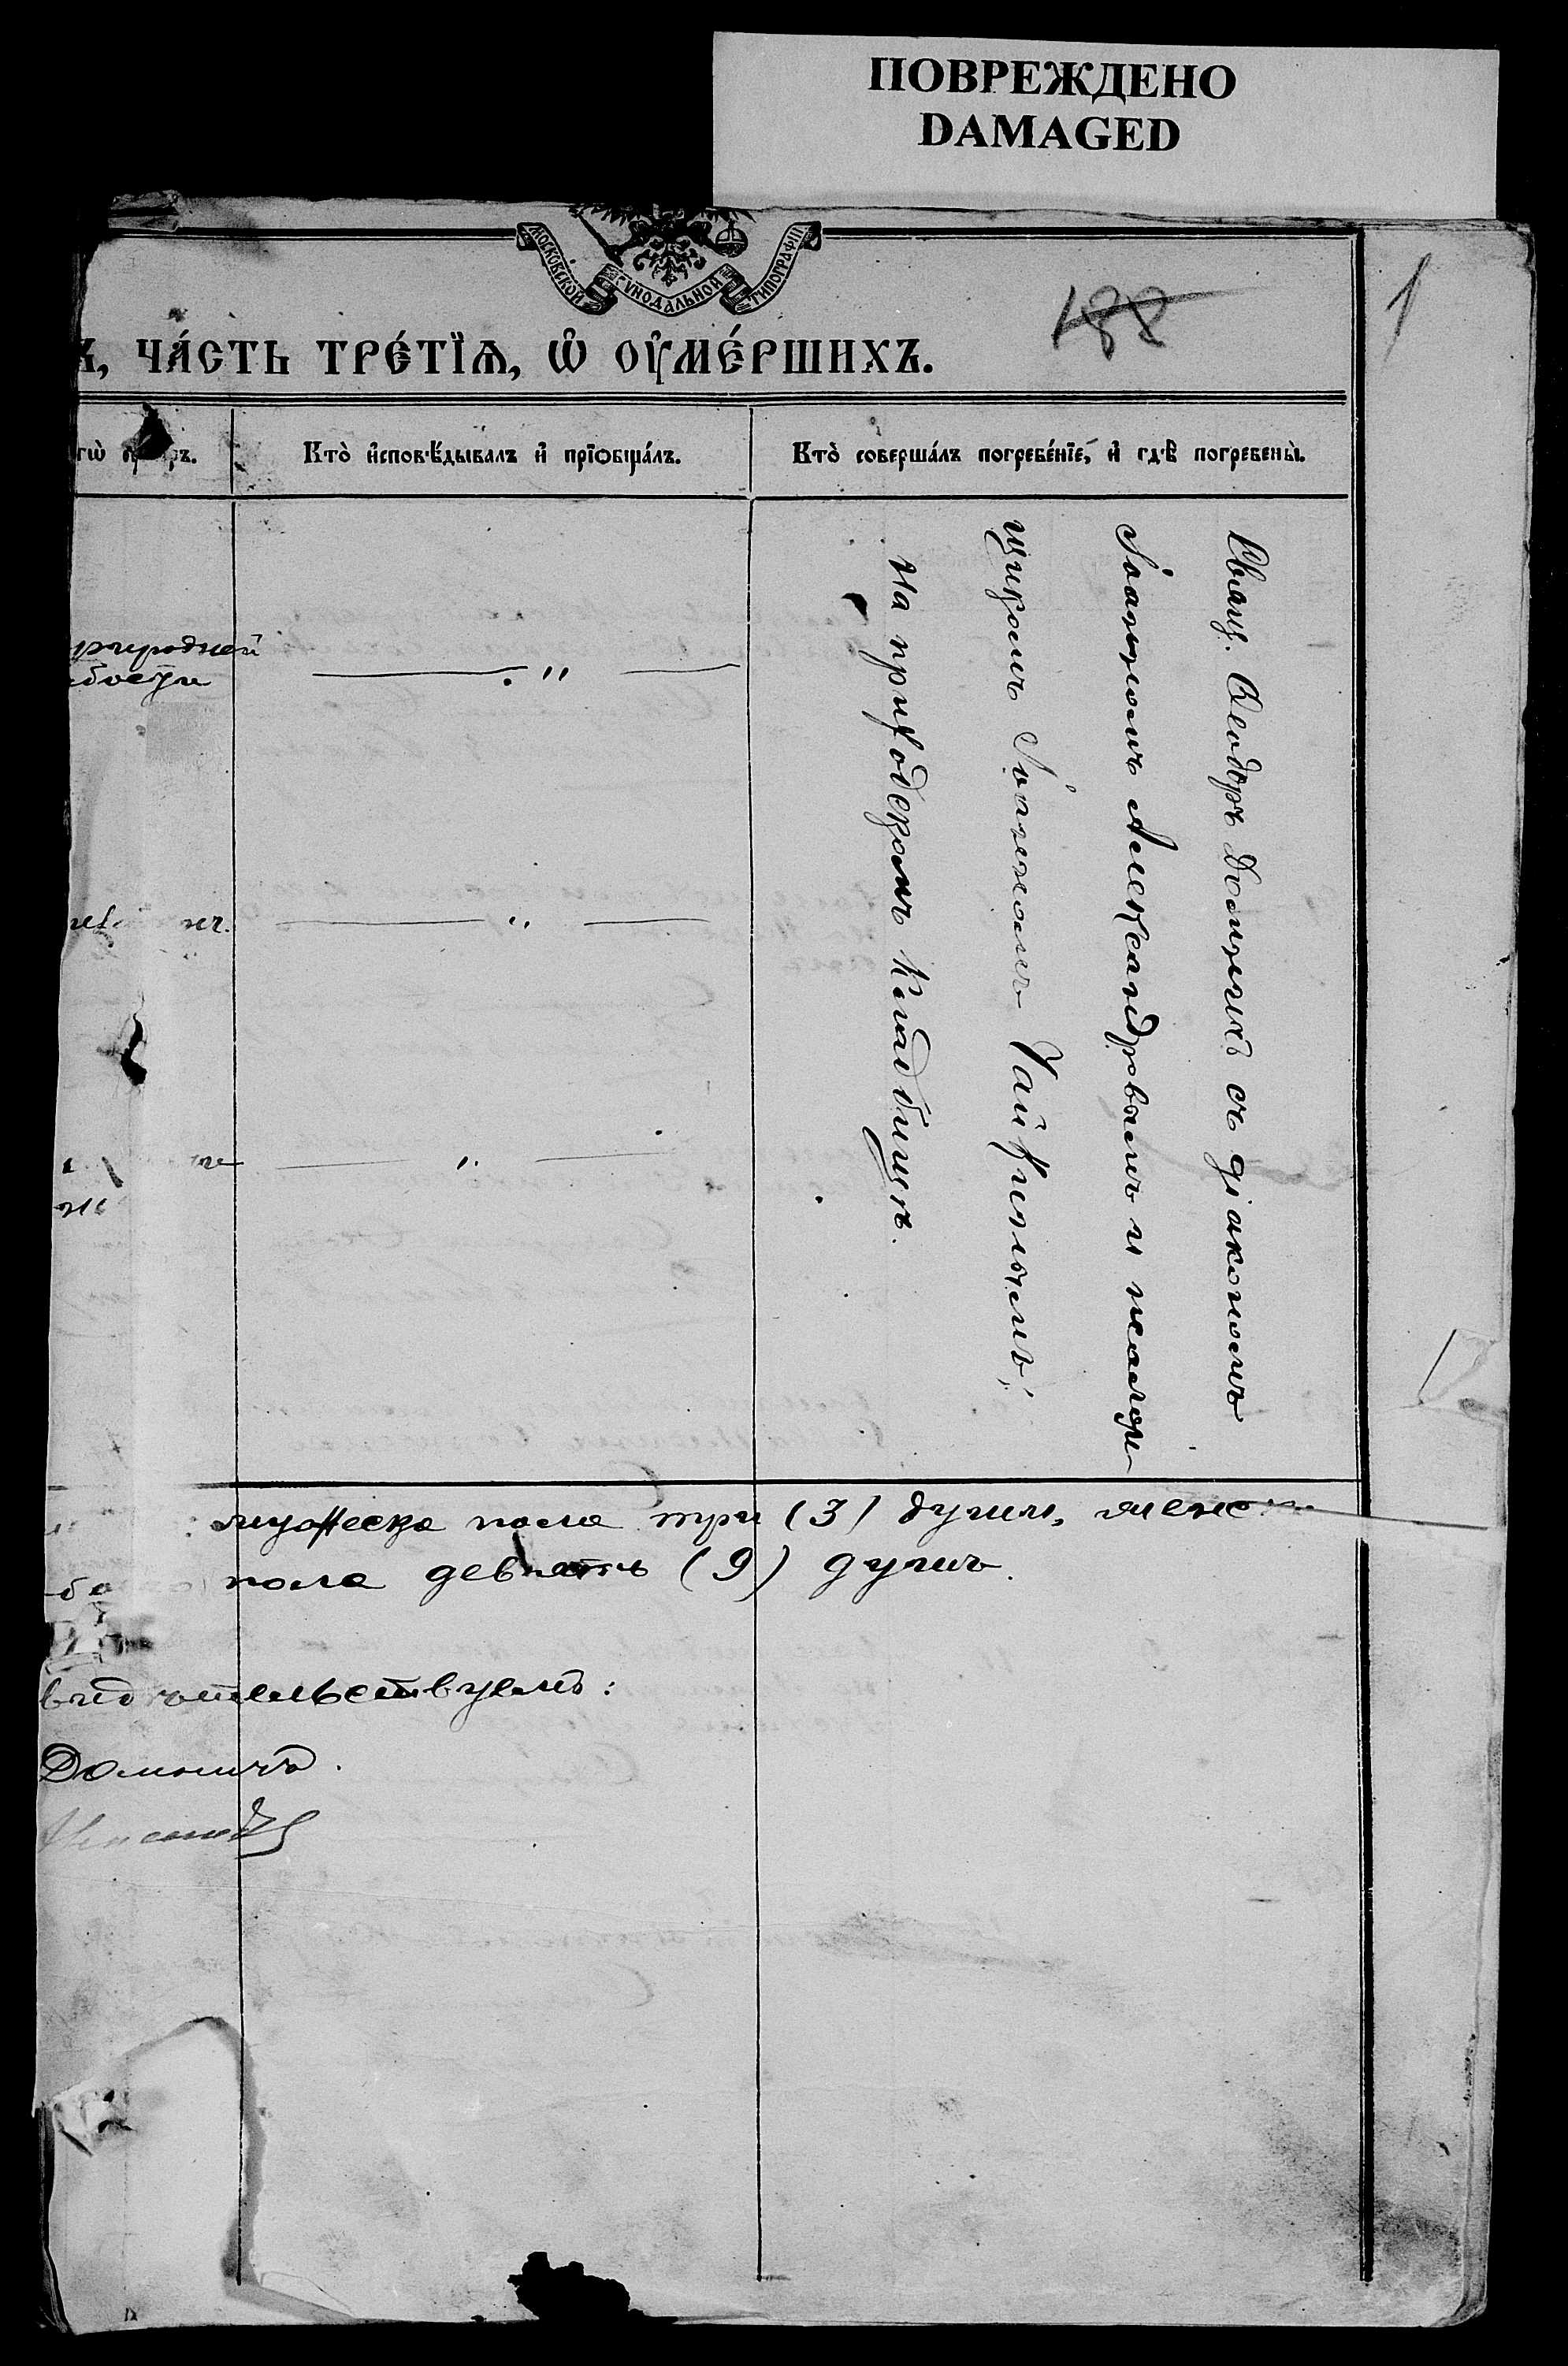 ПОВРЕЖДЕНО
DAMAGED
МОСКОВСКОЙ СѴНОДАЛЬНОЙ ТИПОГРАФІИ
188
1
Ъ, ЧА́СТЬ ТРЕ́ТЇѦ, Ѡ҆ ОУ҆МЕ́РШИХЪ.
Кто̀ и҆сповѣ́дывалъ и҆ прїѡбща́лъ.
Кто̀ соверша́лъ погребе́нїе, и҆ гдѣ̀ погребены̀.
природной
Свящ. Ѳеодоръ Домничъ съ діакономъ
Іоанномъ Александровымъ и псалом-
щикомъ Іоанномъ Чайкинымъ,
на приходскомъ кладбищѣ.
"
"
"
мужеска пола три (3) души, женс
пола девять (9) душъ.
видѣтельствуемъ:
Домничъ.